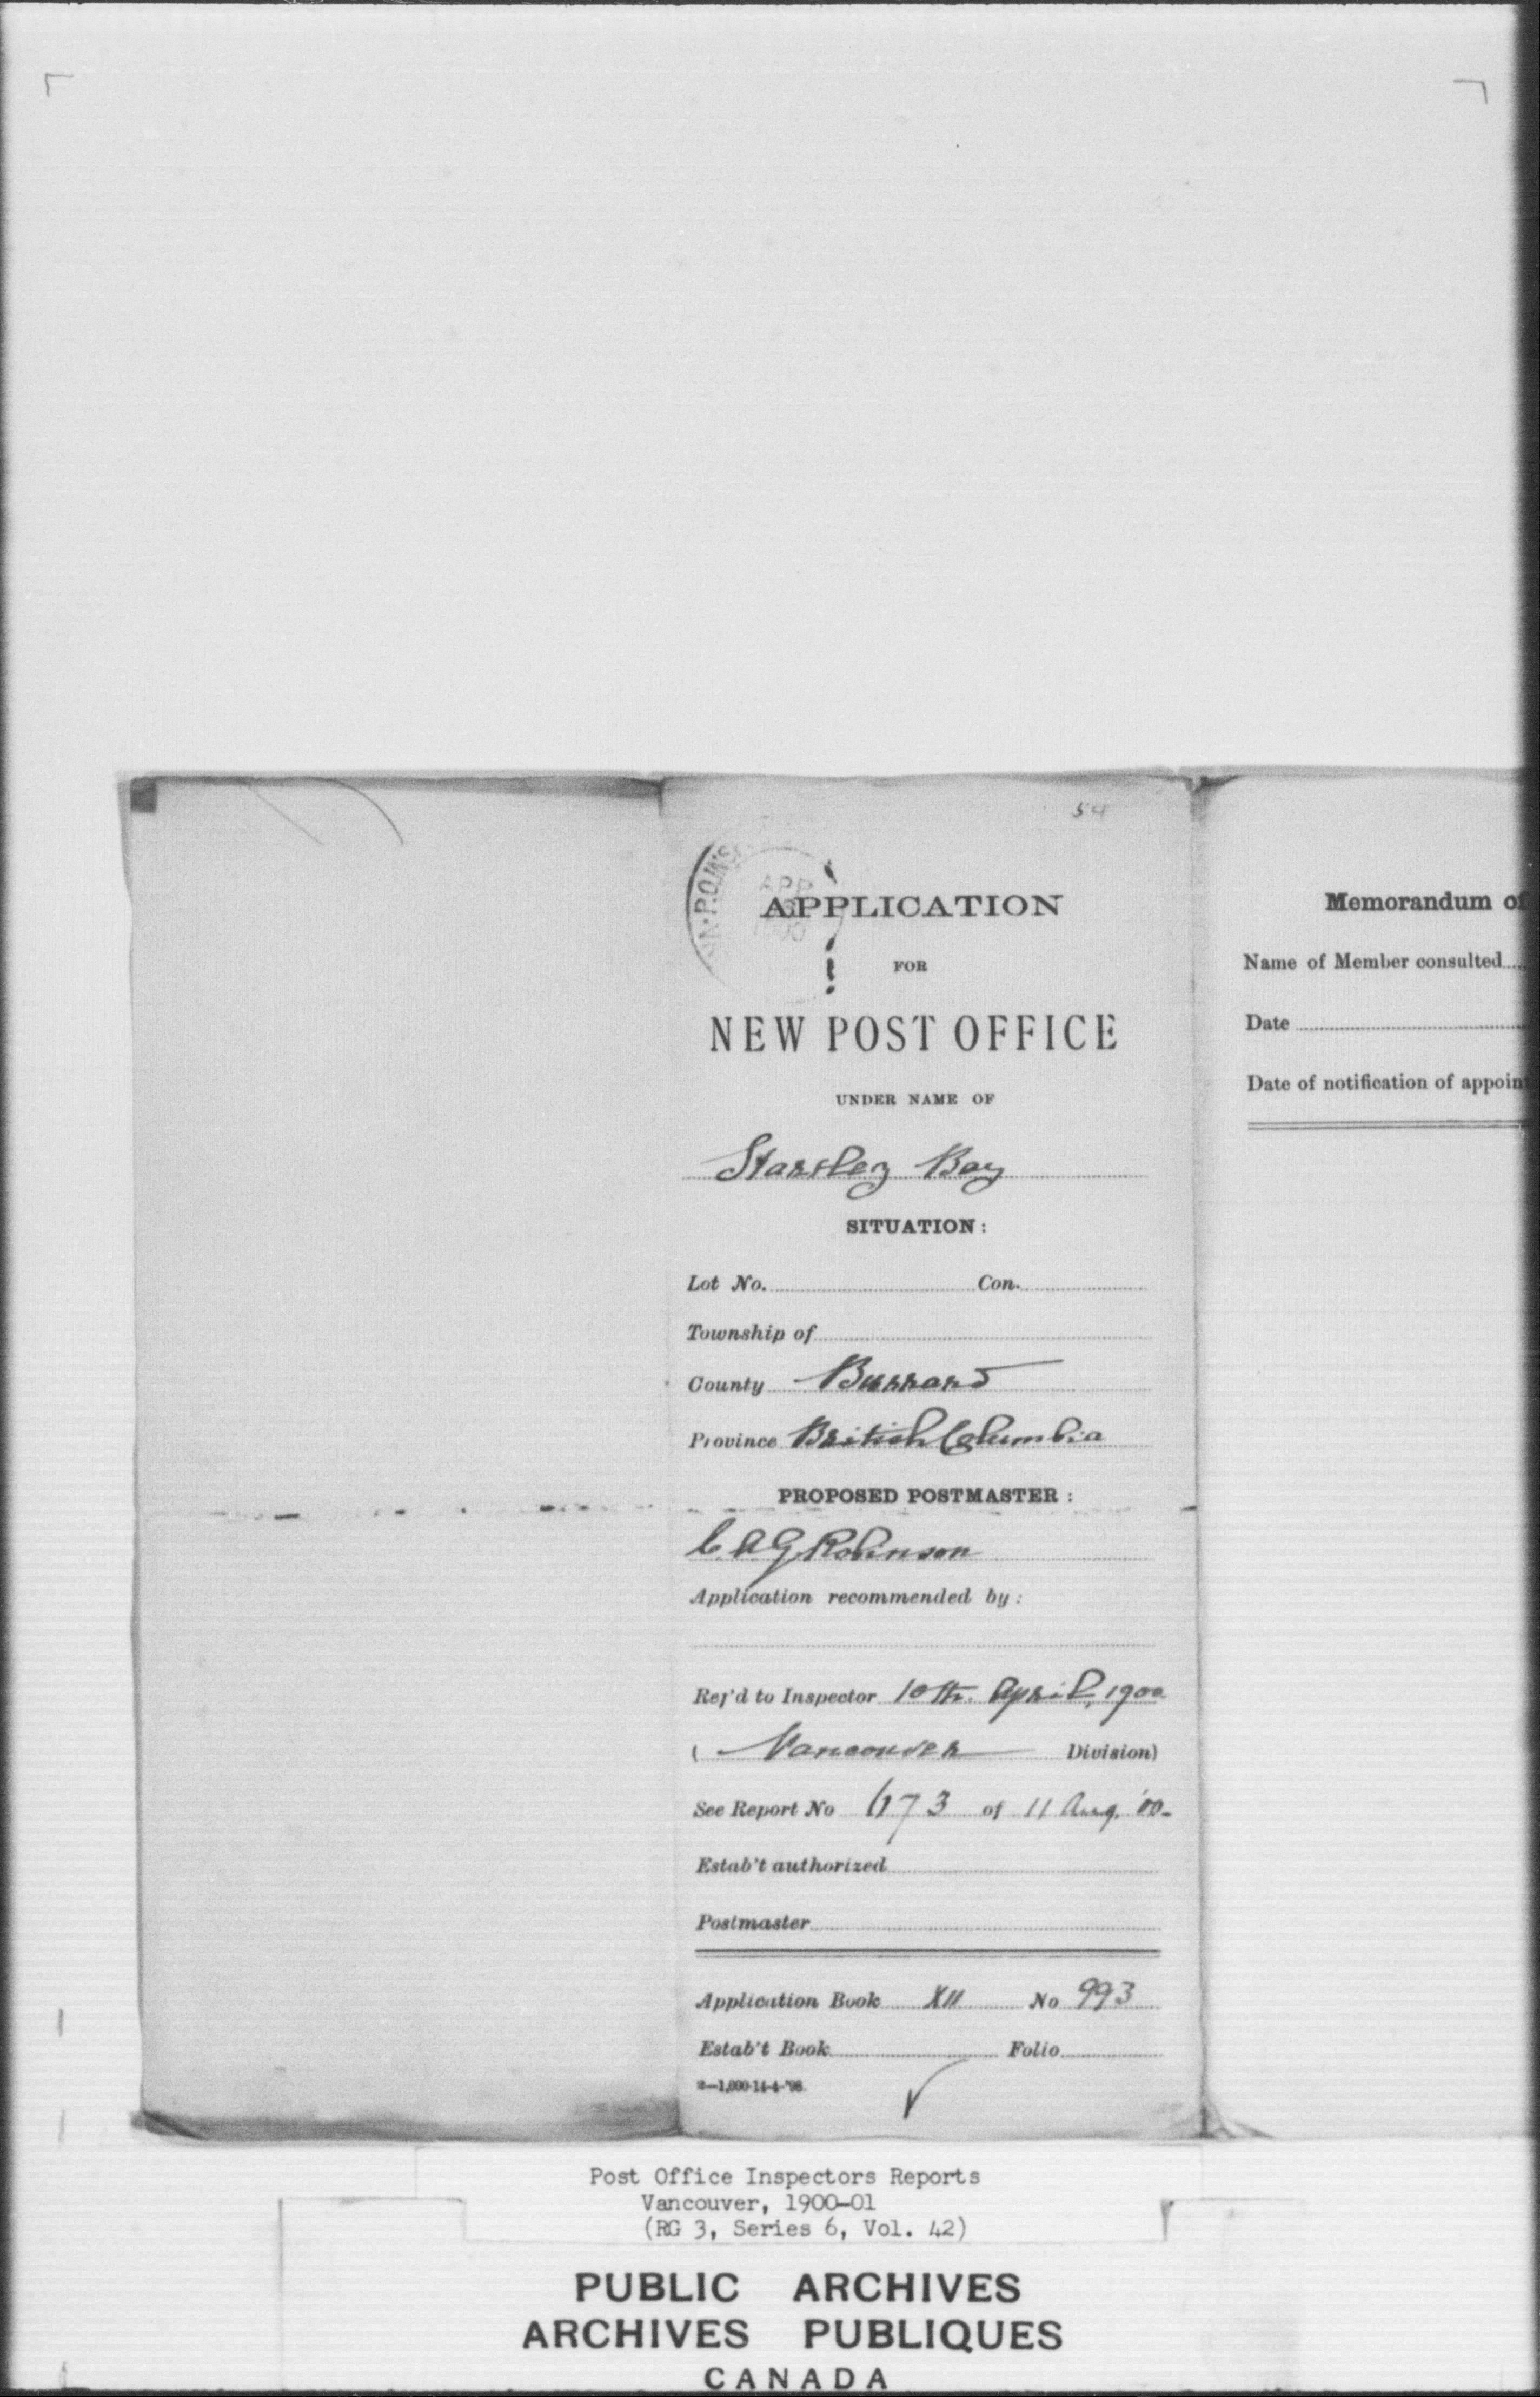 54
APR
1900
APPLICATION
FOR
NEW POST OFFICE
UNDER NAME OF
Bay
SITUATION:
Lot No. Con.
Township of
County Burrard
Province British Columbia
PROPOSED POSTMASTER:
C.A.G. Robinson
Application recommended by:
Ref'd to Inspector 10th. April, 1900
( Vancouver Division)
See Report No 673 of 11 Aug. '00-
Estab't authorized
Postmaster
Application Book XII No 993
Estab't Book Folio
2—1,000-14-4-'98.
Memorandum of
Name of Member consulted
Date
Date of notification of appoin
Post Office Inspectors Reports
Vancouver, 1900-01
(RG 3, Series 6, Vol. 42)
PUBLIC ARCHIVES
ARCHIVES PUBLIQUES
CANADA